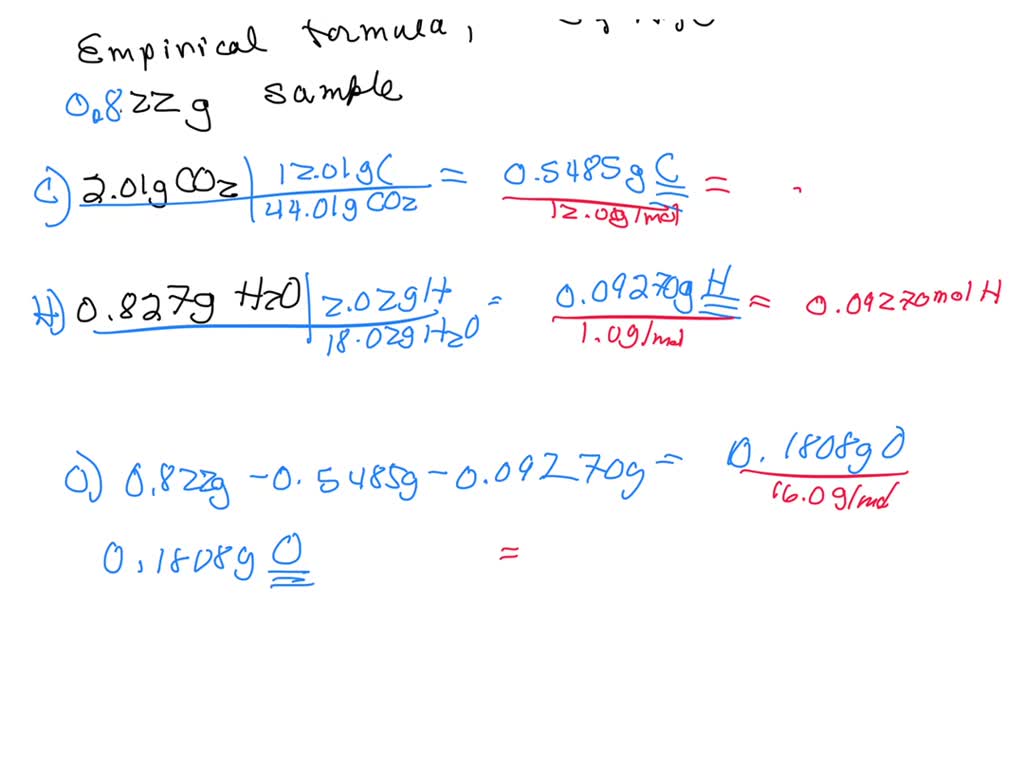 Empirical formula,
0.822g sample
C) 2.01g CO2 | 12.01gC / 44.01g CO2 = 0.5485g C / 12.0g/mol =
H) 0.827g H2O | 2.02gH / 18.02g H2O = 0.09270g H / 1.0g/mol = 0.09270mol H
O) 0.822g - 0.5485g - 0.09270g = 0.1808g O / 16.0g/mol
0.1808g O =